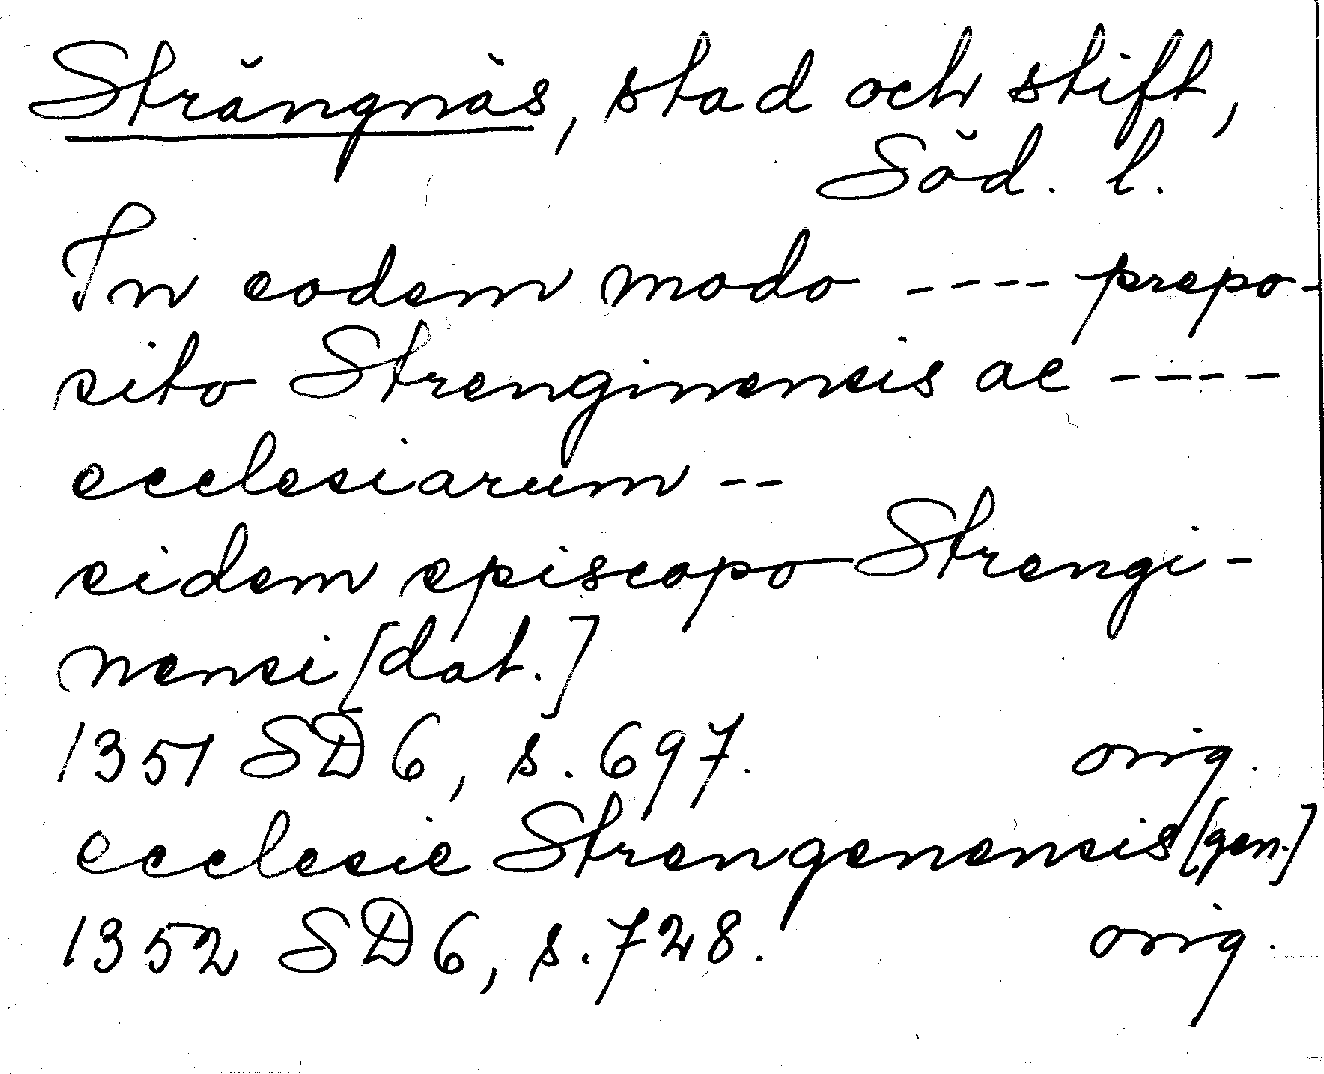 Strängnäs, stad och stift,
Söd. l.
In eodem modo ---- prepo-
sito Strenginensis ac ----
ecclesiarum --
eidem episcopo Strengi-
nensi [dat.]
1351 SD 6, s. 697. orig.
ecclesie Strengenensis [gen.]
1352 SD 6, s. 728. orig.